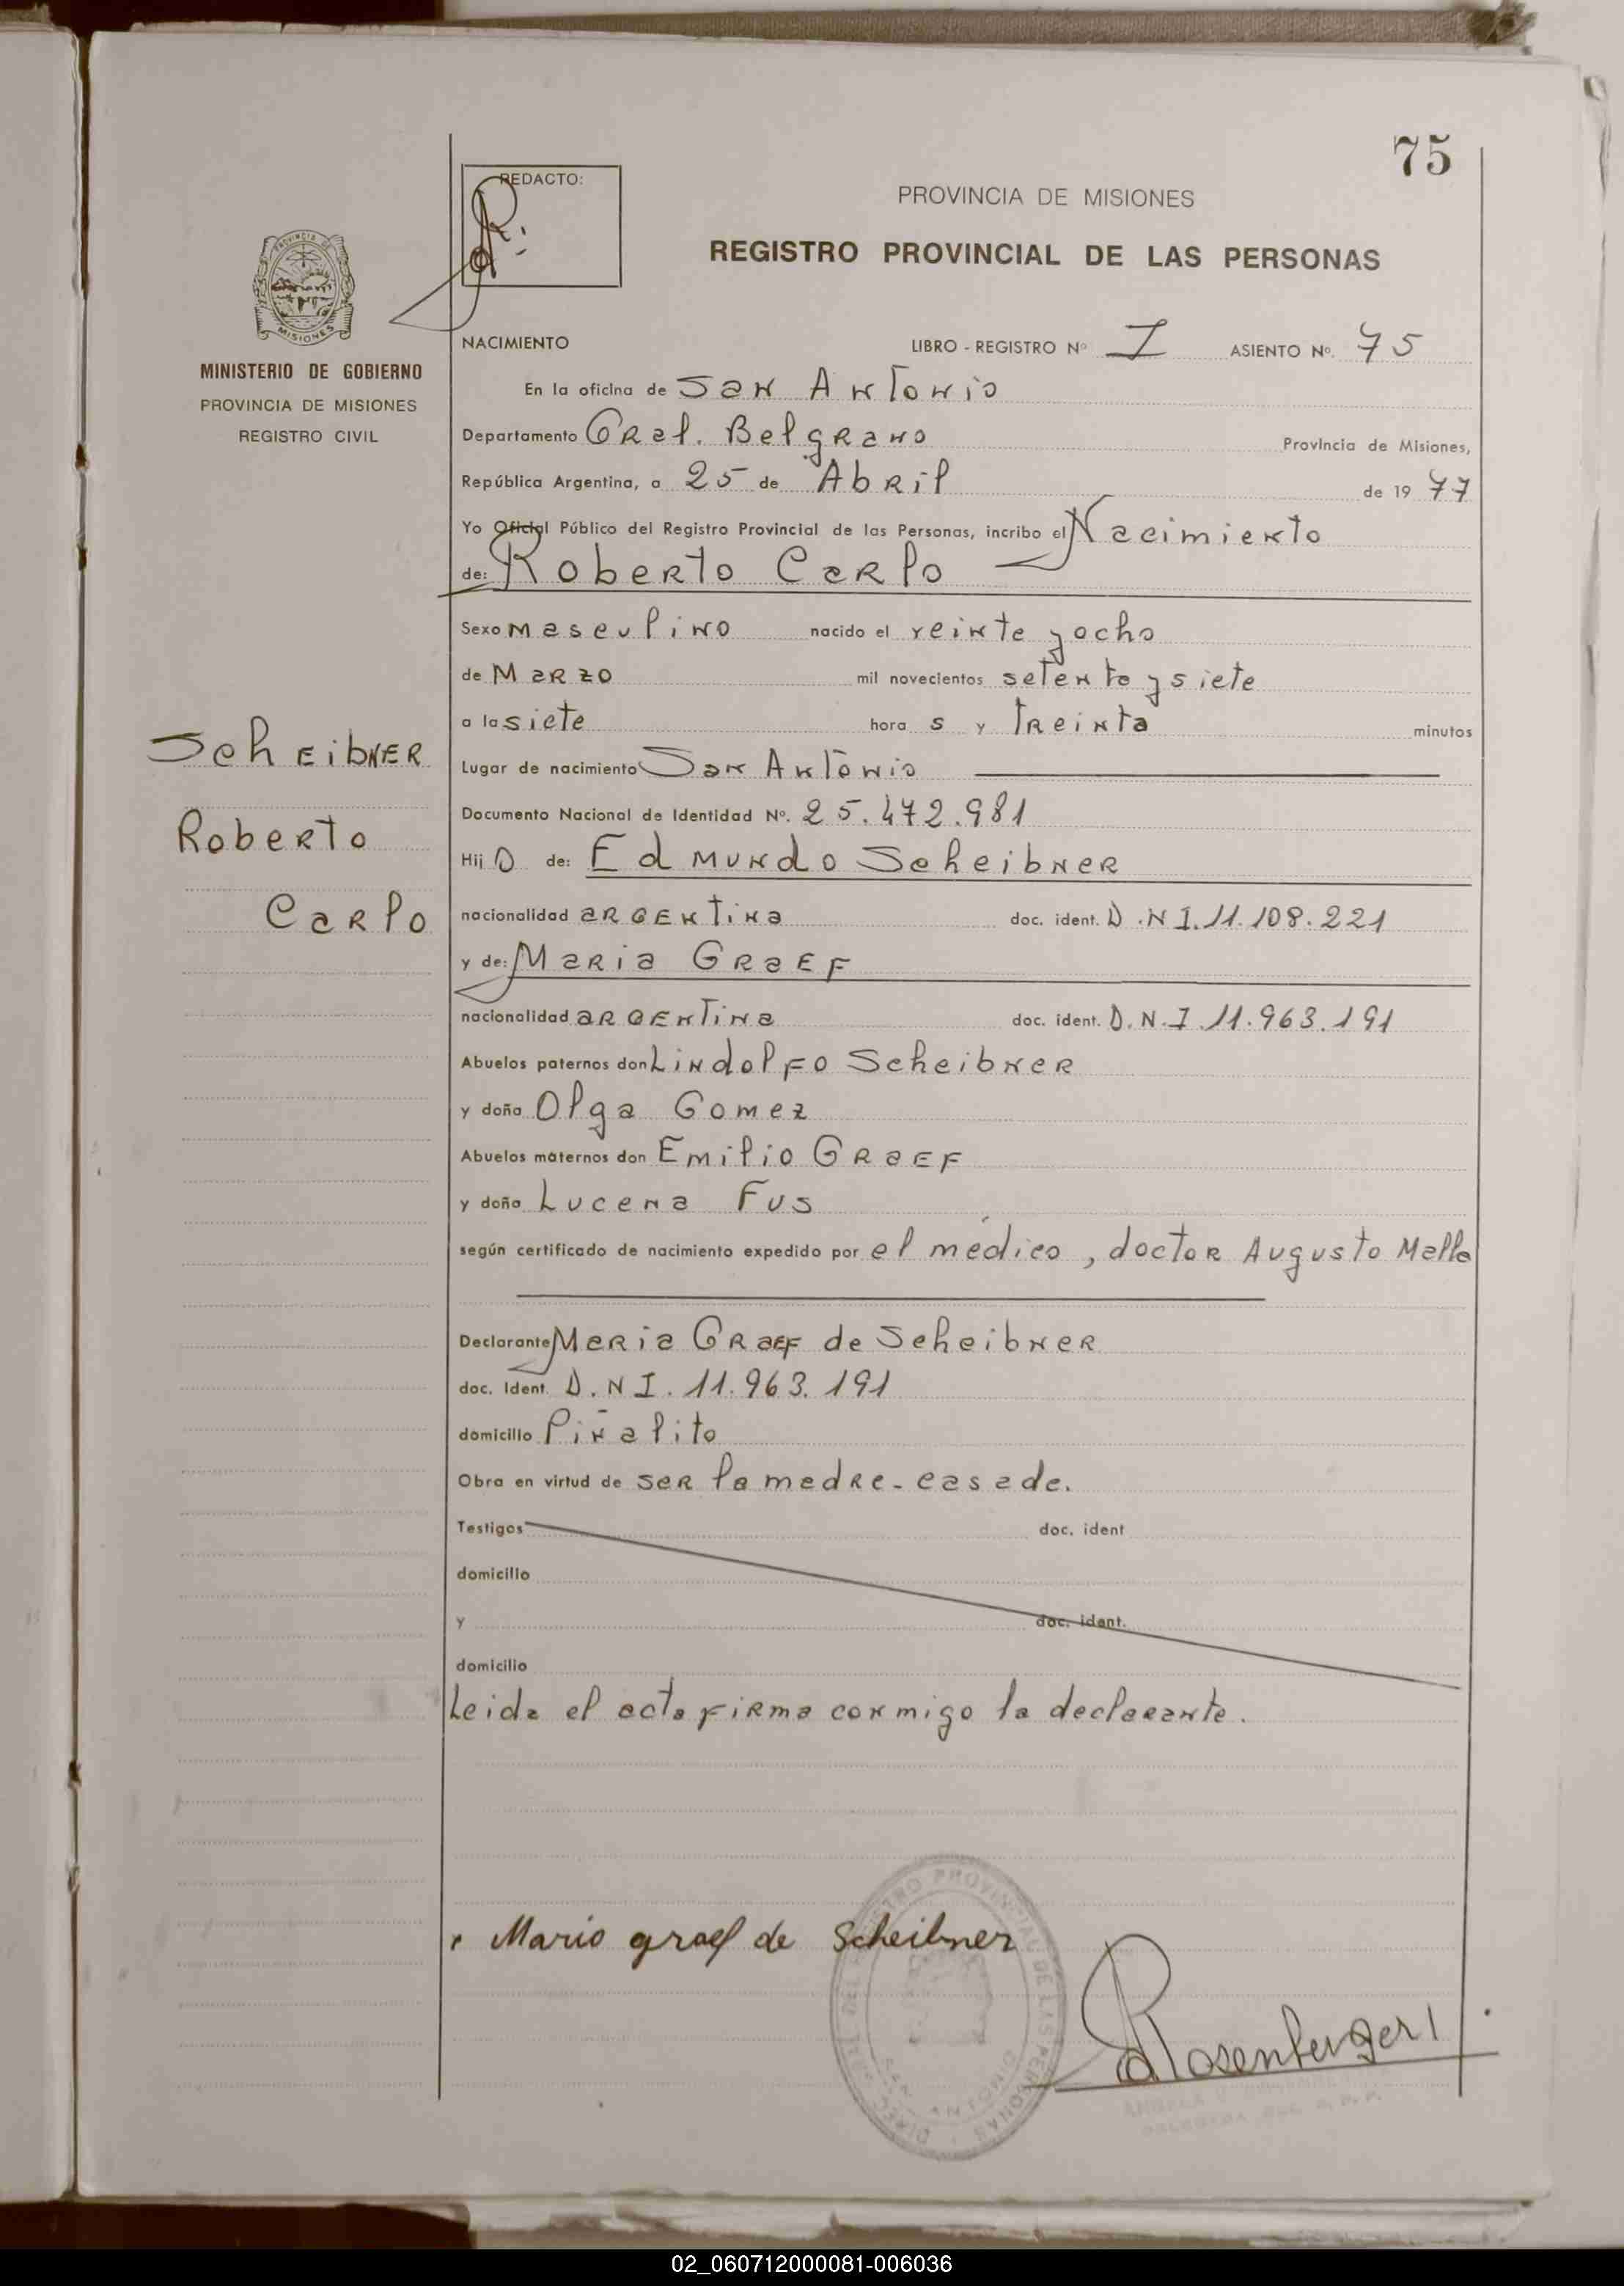 75
REDACTO:
PROVINCIA DE MISIONES
REGISTRO PROVINCIAL DE LAS PERSONAS
PROVINCIA DE
MISIONES
MINISTERIO DE GOBIERNO
PROVINCIA DE MISIONES
REGISTRO CIVIL
NACIMIENTO LIBRO - REGISTRO Nº I ASIENTO Nº. 75
En la oficina de San Antonio
Departamento Gral. Belgrano Provincia de Misiones,
República Argentina, a 25 de Abril de 19 77
Yo Oficial Público del Registro Provincial de las Personas, incribo el Nacimiento
de: Roberto Carlo
Sexo masculino nacido el veinte y ocho
de Marzo mil novecientos setenta y siete
a la siete hora s y treinta minutos
Scheibner
Roberto
Carlo
Lugar de nacimiento San Antonio
Documento Nacional de Identidad Nº. 25.472.981
Hij o de: Edmundo Scheibner
nacionalidad argentina doc. ident. D.N I.11.108.221
y de: Maria Graef
nacionalidad argentina doc. ident. D.N.I.11.963.191
Abuelos paternos don Lindolfo Scheibner
y doña Olga Gomez
Abuelos maternos don Emilio Graef
y doña Lucena Fus
según certificado de nacimiento expedido por el médico, doctor Augusto Mello
Declarante Maria Graef de Scheibner
doc. Ident. D.N I. 11.963.191
domicilio Piñalito
Obra en virtud de ser la madre-casada.
Testigos doc. ident
domicilio
y doc. ident.
domicilio
Leida el acta firma conmigo la declarante.
Maria graef de Scheibner
Rosenberger
DIREC. GRAL. DEL REGISTRO PROVINCIAL DE LAS PERSONAS
SAN ANTONIO
02_060712000081-006036